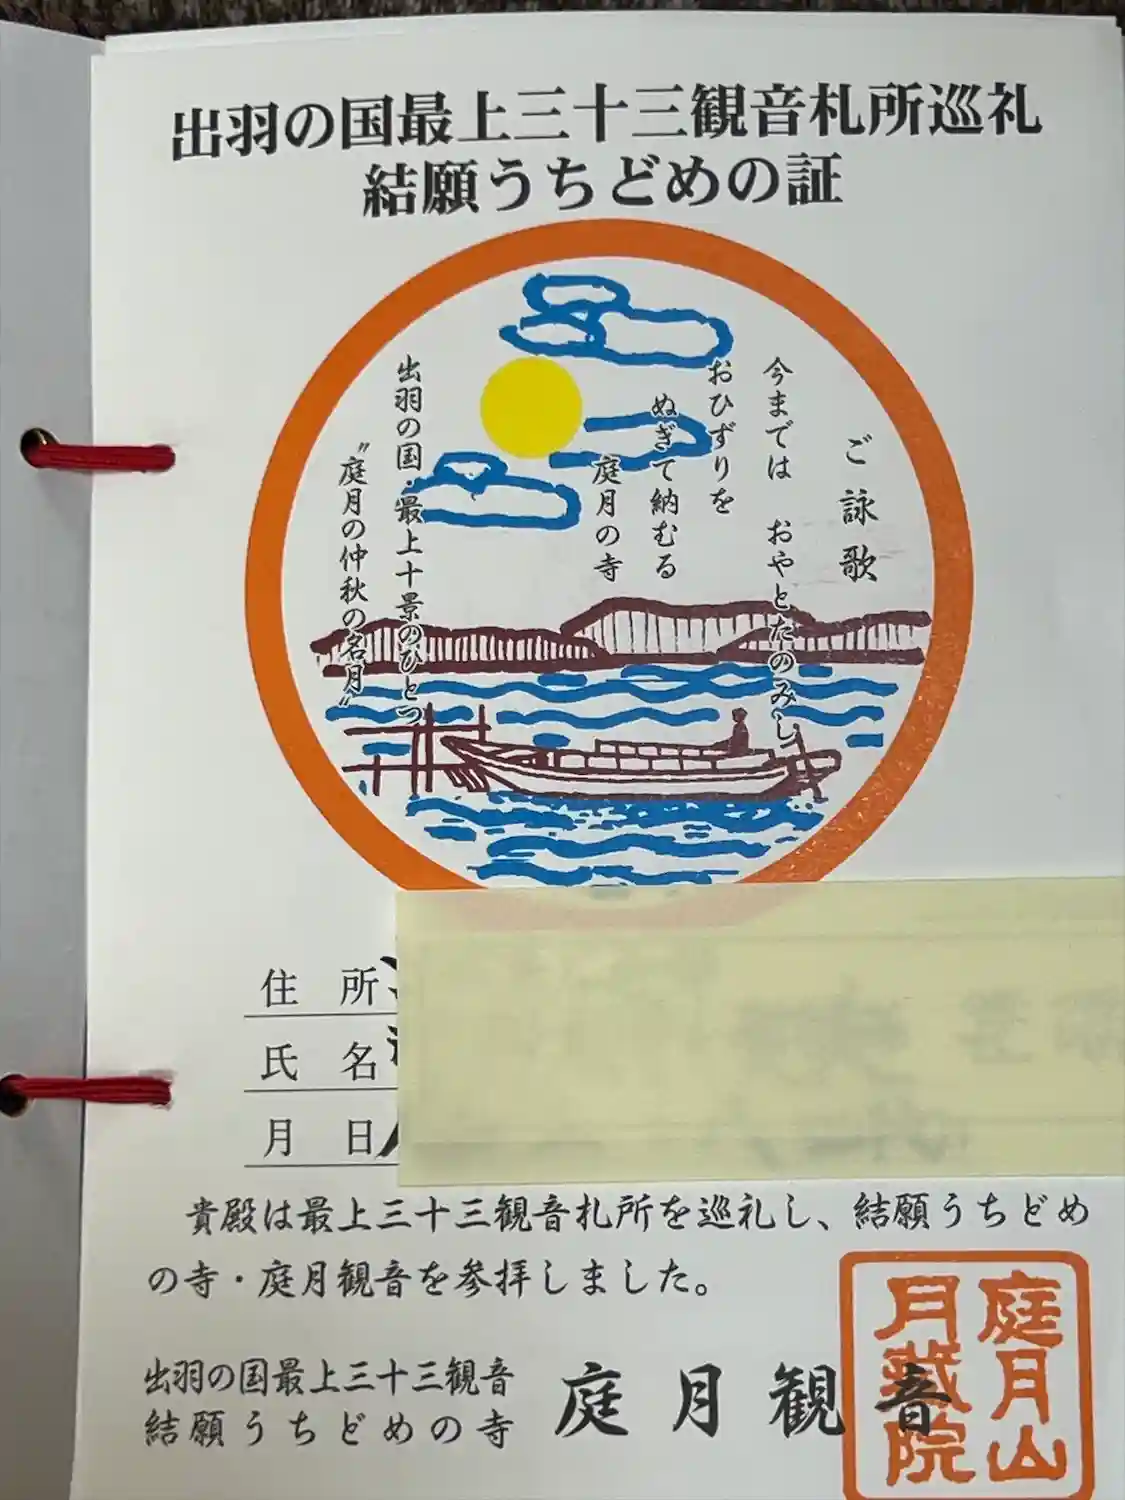 出羽の国最上三十三観音札所巡礼
結願うちどめの証
ご詠歌
今までは おやとたのみし
おひずりを
ぬぎて納むる
庭月の寺
出羽の国・最上十景のひとつ
〝庭月の仲秋の名月〟
住 所
氏 名
月 日
貴殿は最上三十三観音札所を巡礼し、結願うちどめ
の寺・庭月観音を参拝しました。
出羽の国最上三十三観音
結願うちどめの寺
庭月観音
庭月山
月蔵院